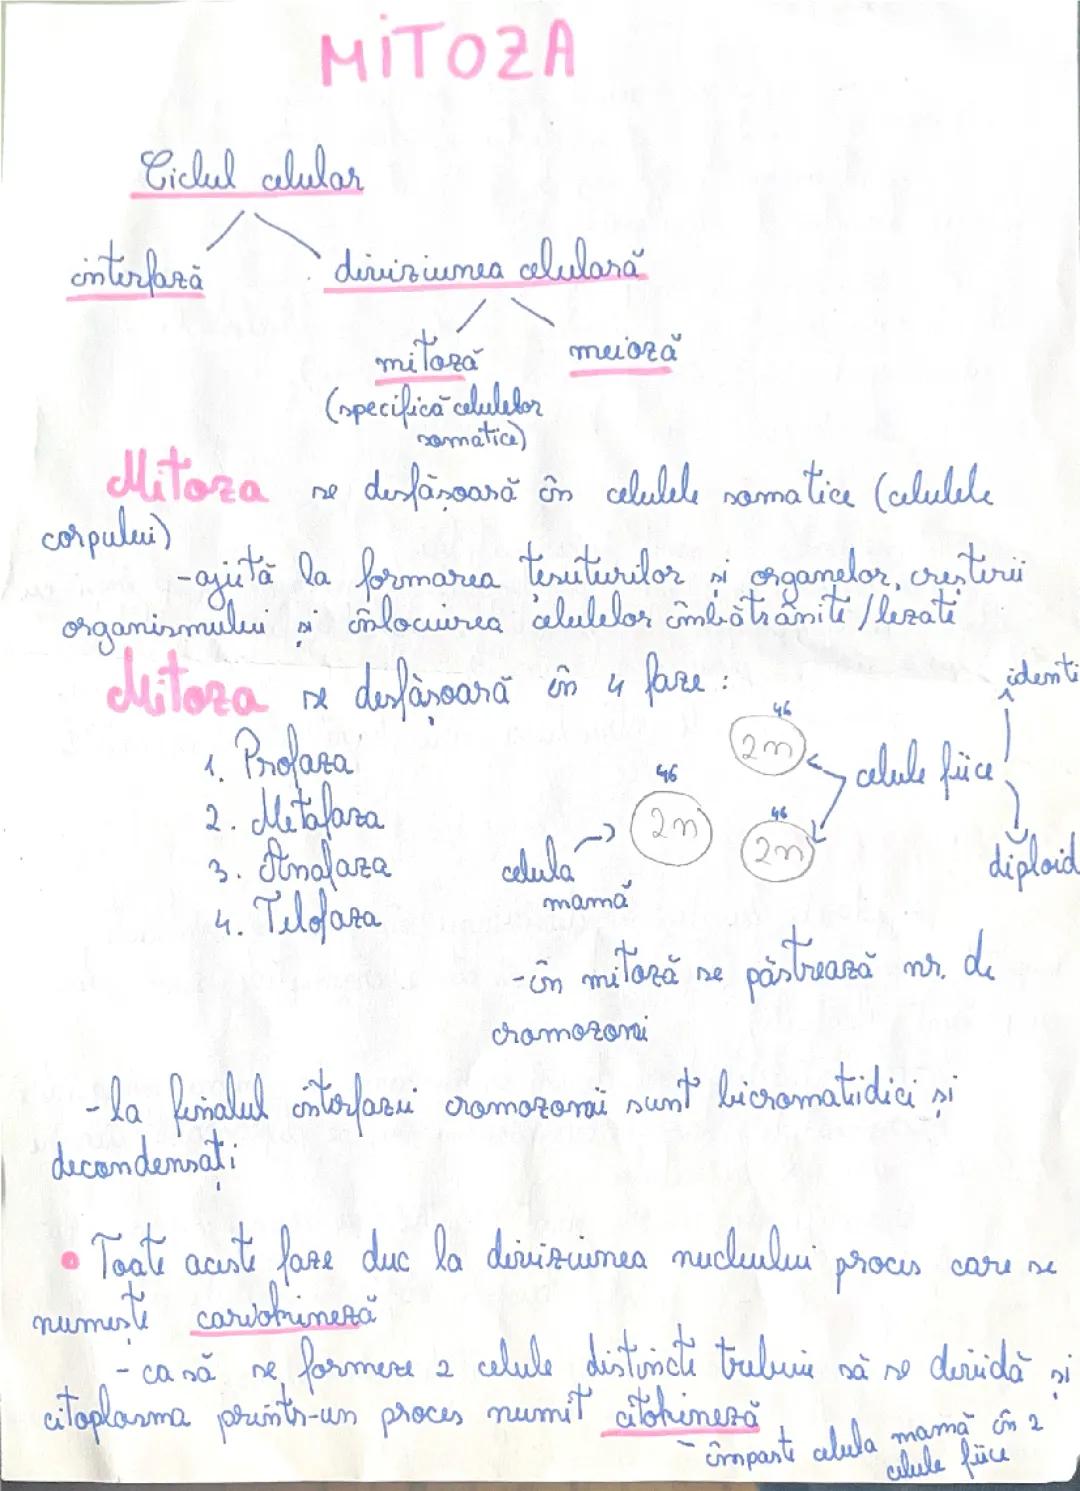 MITOZA
Ciclul celular
interfază
diviziunea celulară
mitoză
meioză
(specifică celulelor
somatice)
Mitoza se desfășoară în celulele somatice (celulele
corpului)
-ajută la formarea țesuturilor și organelor, creșterii
organismului și înlocuirea celulelor îmbătrânite/lezate
Mitoza se desfășoară în 4 faze:
identi
1. Profaza
46
2n
celule fiice
2. Metafaza
46
2n
46
2n
3. Anafaza
celula
mamă
diploid
4. Telofaza
-în mitoză se păstrează nr. de
cromozomi
-la finalul interfazei cromozomii sunt bicromatidici și
decondensați
• Toate aceste faze duc la diviziunea nucleului proces care se
numește cariokineză
- ca să se formeze 2 celule distincte trebuie să se dividă și
citoplasma printr-un proces numit citokineză
- împarte celula mamă în 2
celule fiice